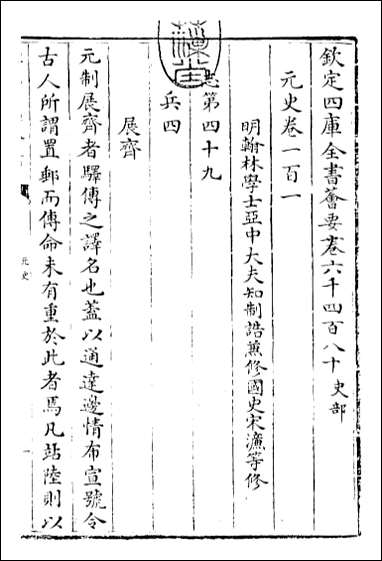 欽定四庫全書薈要卷六千四百八十 史部
元史卷一百一
明翰林學士亞中大夫知制誥兼修國史宋濂等修
志第四十九
兵四
展齊
元制展齊者驛傳之譯名也蓋以通達邊情布宣號令
古人所謂置郵而傳命未有重於此者焉凡站陸則以
元史
一